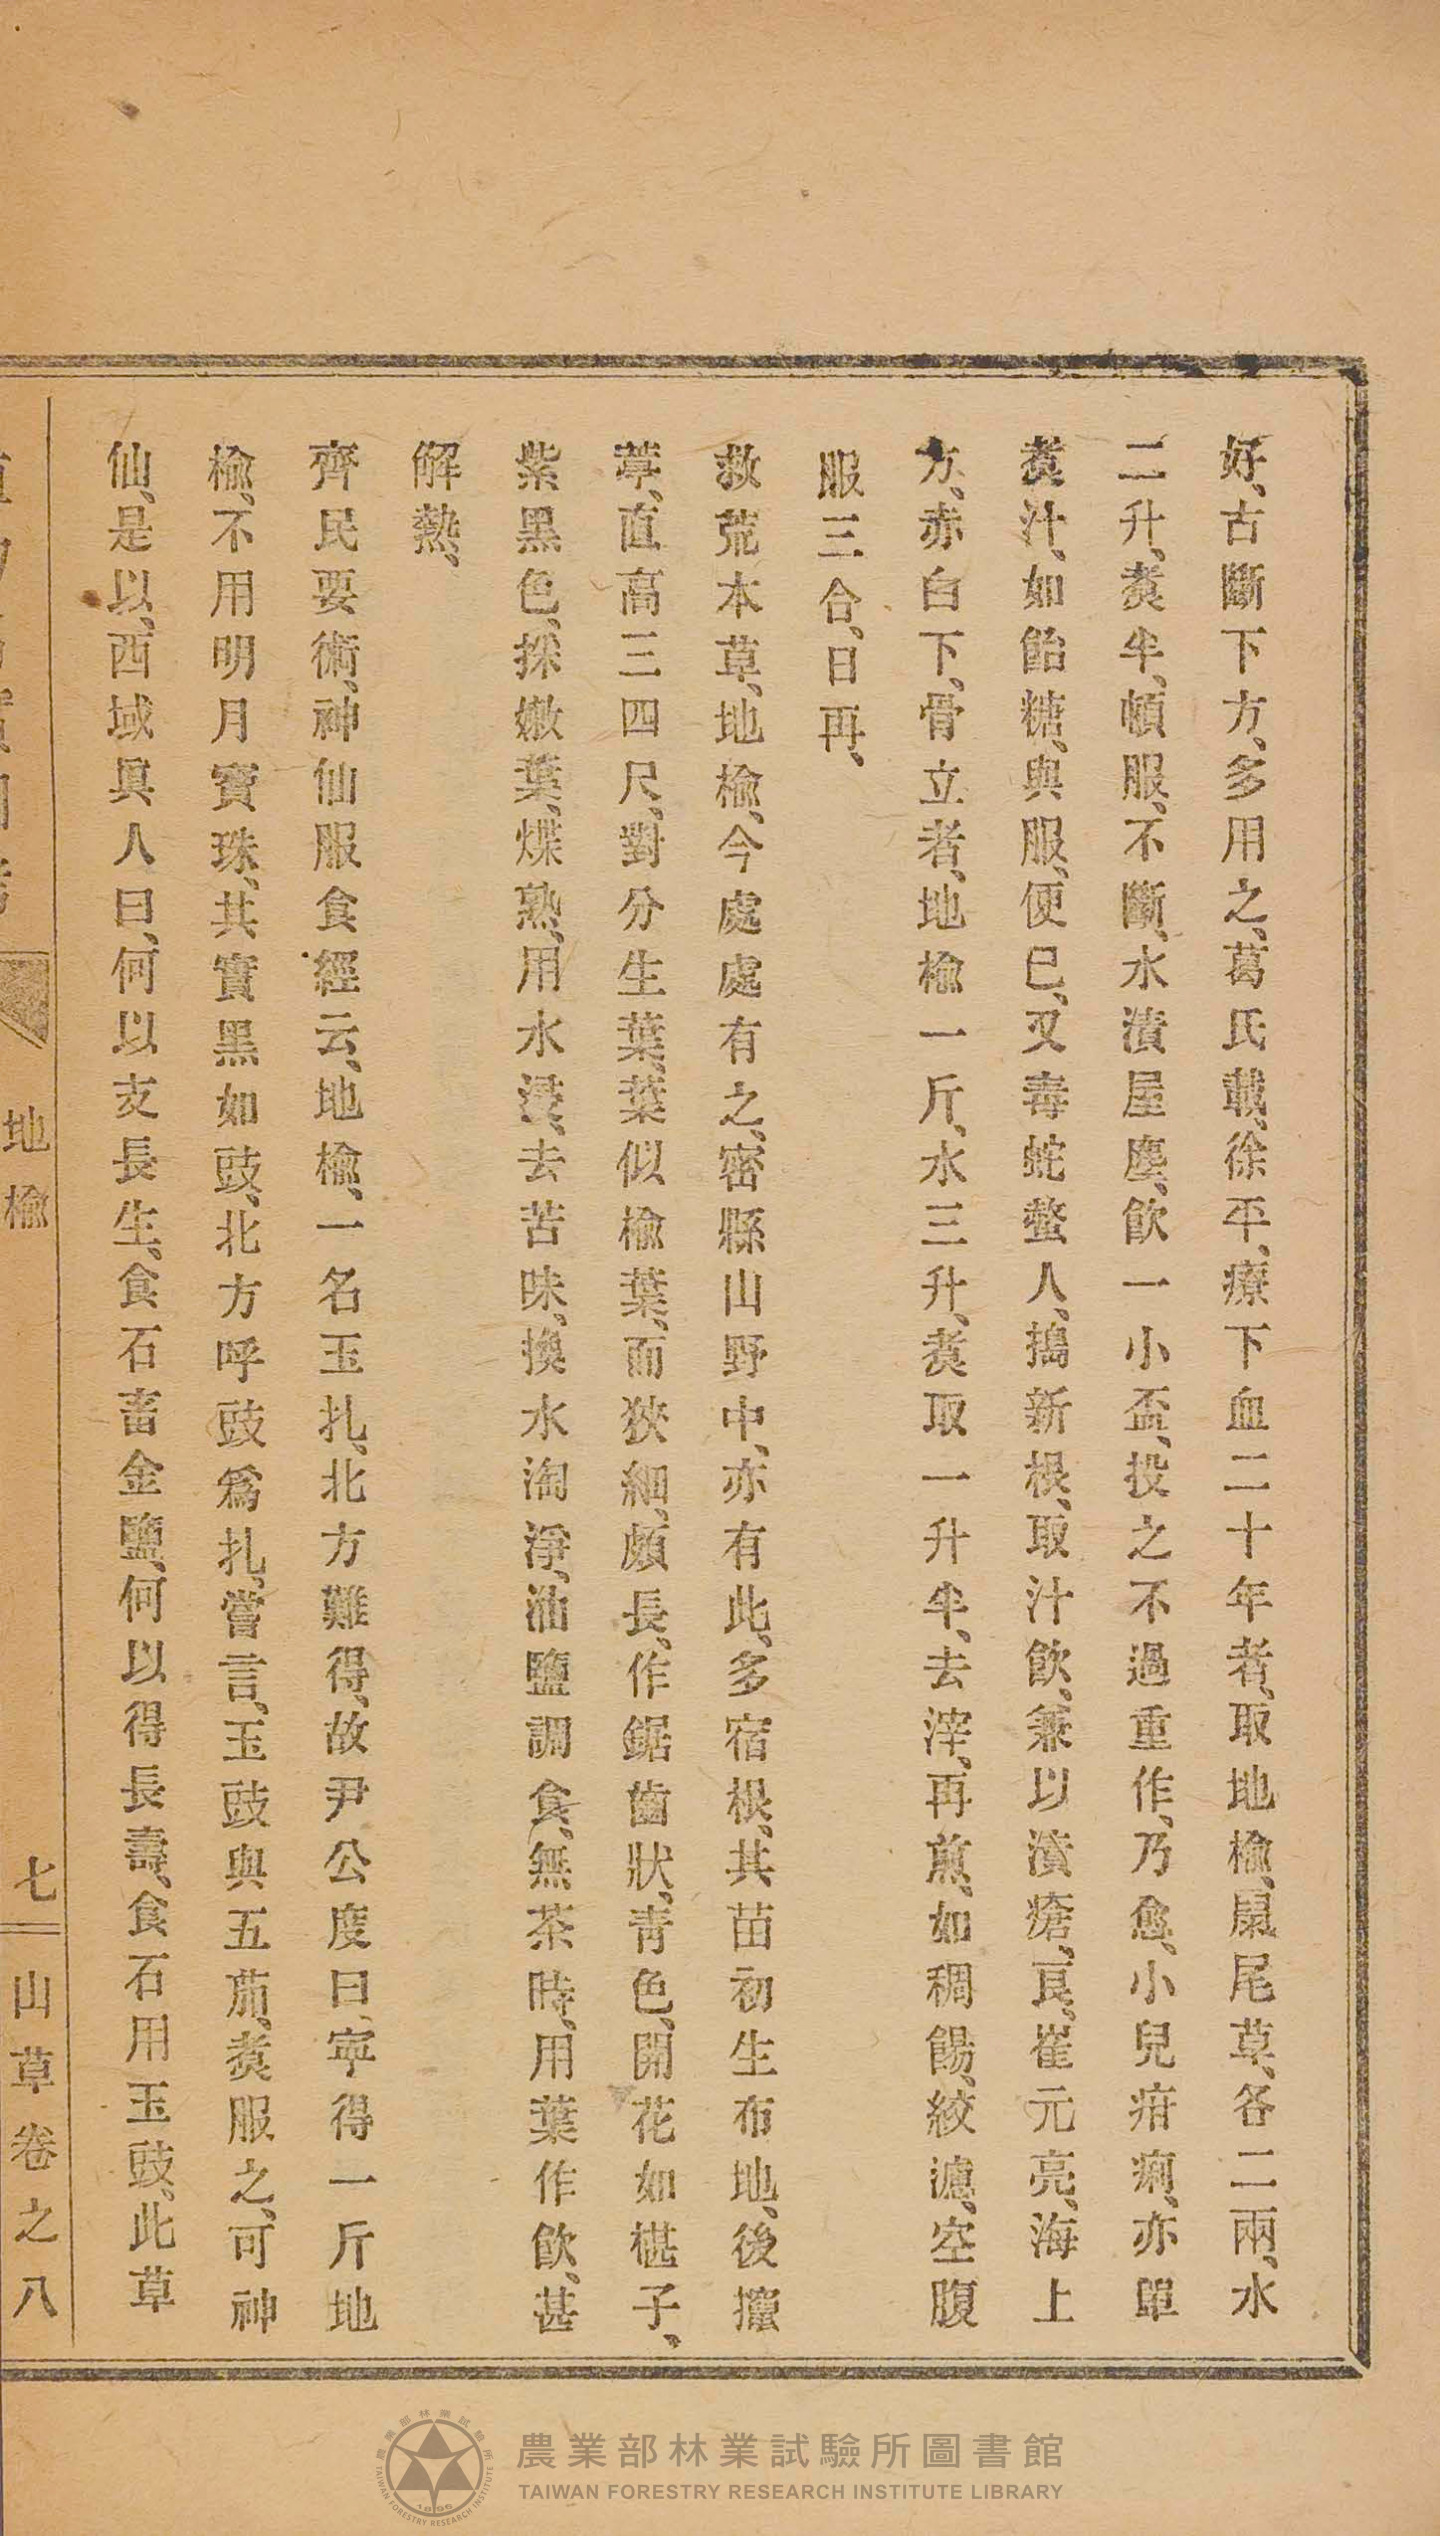 好、古斷下方、多用之、葛氏載、徐平、療下血二十年者、取地楡、鼠尾草、各二兩、水
二升、煑半、頓服、不斷、水漬屋塵、飮一小盃、投之不過重作、乃愈、小兒疳痢、亦單
煑汁、如飴糖、與服、便已、又毒蛇螫人、搗新根、取汁飮、兼以漬瘡、良、崔元亮、海上
方、赤白下、骨立者、地楡一斤、水三升、煑取一升半、去滓、再煎、如稠餳、絞濾、空腹
服三合、日再、
救荒本草、地楡、今處處有之、密縣山野中、亦有此、多宿根、其苗初生布地、後攛
葶、直高三四尺、對分生葉、葉似楡葉、而狹細、頗長、作鋸齒狀、靑色、開花如椹子、
紫黑色、採嫩葉、煠熟、用水浸、去苦味、換水淘淨、油鹽調食、無茶時、用葉作飮、甚
解熱、
齊民要術、神仙服食經云、地楡、一名玉扎、北方難得、故尹公度曰、寧得一斤地
楡、不用明月寶珠、其實黑如豉、北方呼豉爲扎、嘗言、玉豉與五茄、煑服之、可神
仙、是以、西域眞人曰、何以支長生、食石畜金鹽、何以得長壽、食石用玉豉、此草
地楡
七
山草卷之八
農業部林業試驗所圖書館
TAIWAN FORESTRY RESEARCH INSTITUTE LIBRARY
農業部林業試驗所
TAIWAN FORESTRY RESEARCH INSTITUTE
1896